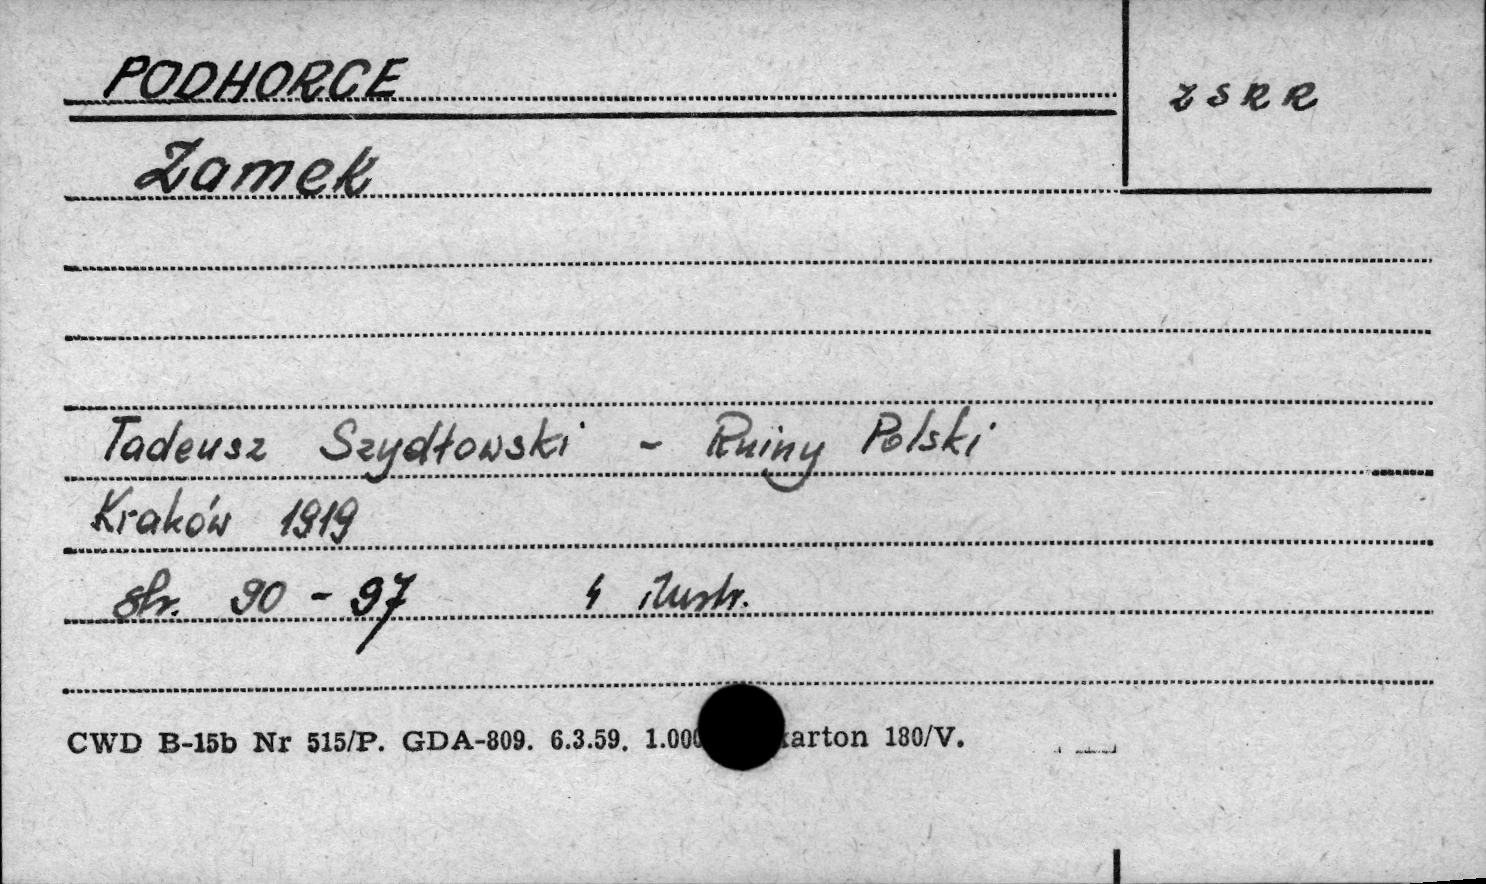 PODHORCE
ZSRR
Zamek
Tadeusz Szydłowski - Ruiny Polski
Kraków 1919
str. 90 - 97 4 ilustr.
CWD B-15b Nr 515/P. GDA-809. 6.3.59. 1.000 karton 180/V.